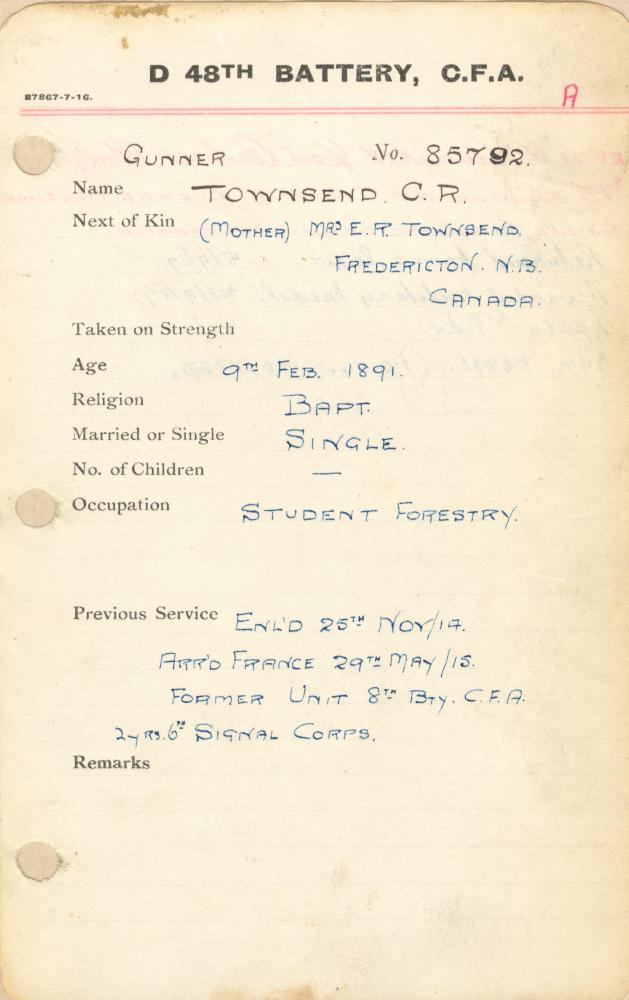 D 48TH BATTERY, C.F.A.
87867-7-16.
A
GUNNER No. 85792.
Name TOWNSEND. C. R.
Next of Kin (MOTHER) MRS E. R. TOWNSEND,
FREDERICTON. N.B.
CANADA.
Taken on Strength
Age 9TH FEB. 1891.
Religion BAPT.
Married or Single SINGLE.
No. of Children —
Occupation STUDENT FORESTRY.
Previous Service ENL'D 25TH NOV/14.
ARR'D FRANCE 29TH MAY/15.
FORMER UNIT 8TH BTY. C.F.A.
2 yrs. 6TH SIGNAL CORPS.
Remarks